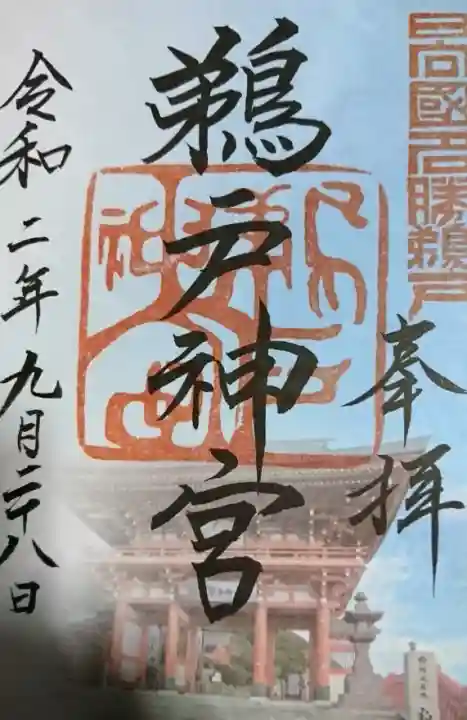 日向國名勝鵜戸
奉拝
鵜戸神宮
令和二年九月二十八日